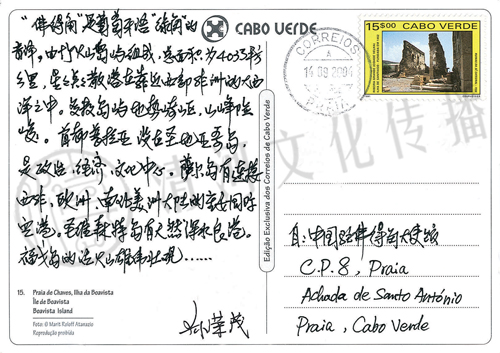 CABO VERDE
"佛得角"是葡萄牙语"绿角"的
意译。由十八火山岛屿组成，总面积为4033平方
公里，星星点点散落在靠近西部非洲的大西
洋之中。各岛屿地势崎岖，山峰陡
峻。首都普拉亚设在圣地亚哥岛，
是政治、经济、文化中心。萨尔岛有连接
西非、欧洲、南北美洲大陆的国际
空港。圣维森特岛有天然深水良港。
福戈岛的活火山雄伟壮观……
15. Praia de Chaves, Ilha da Boavista
Île de Boavista
Boavista Island
Foto: © Marit Roloff Atanazio
Reprodução proibida
Edição Exclusiva dos Correios de Cabo Verde
15$00 CABO VERDE
CORREIOS
PRAIA
文化传播
自：中国驻佛得角大使馆
C.P. 8, Praia
Achada de Santo António
Praia, Cabo Verde